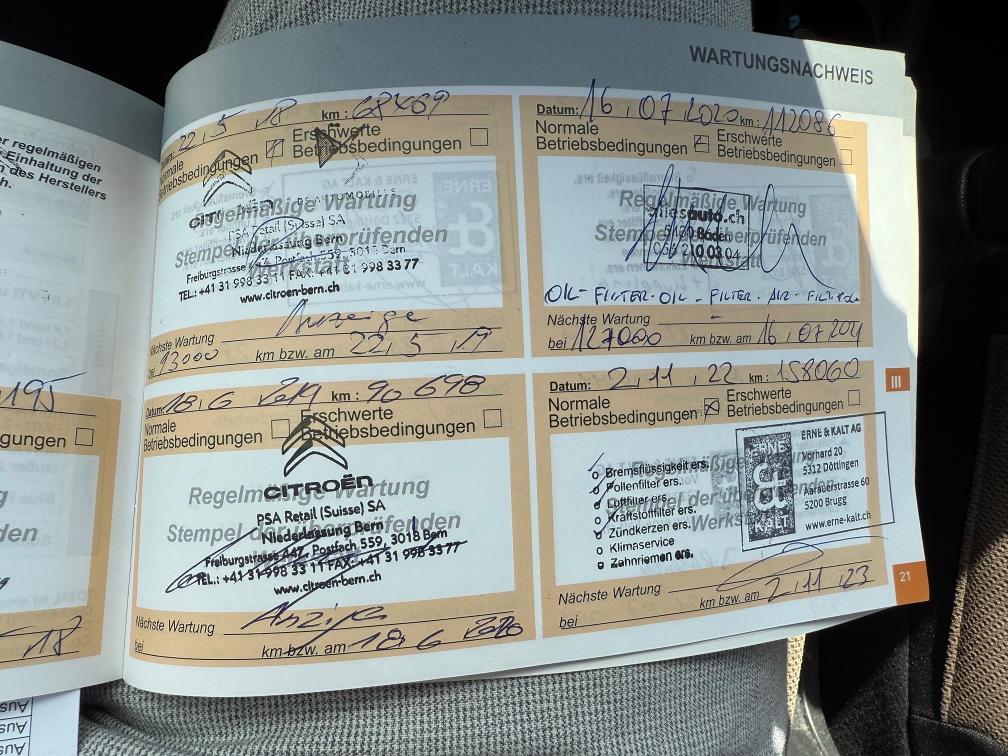 WARTUNGSNACHWEIS
er regelmäßigen
Einhaltung der
des Herstellers
h.
195
gungen
18
22.5 18 km: 68469
Normale Betriebsbedingungen
Erschwerte Betriebsbedingungen
CITROËN
Regelmäßige Wartung
PSA Retail (Suisse) SA
Niederlassung Bern
Stempel der überprüfenden
Freiburgstrasse 447, Postfach 559, 3018 Bern
TEL.: +41 31 998 33 11 FAX: +41 31 998 33 77
www.citroen-bern.ch
Nächste Wartung Anzeige
bei 93000 km bzw. am 22.5 19
Datum: 16.07.2020 km: 112086
Normale Betriebsbedingungen
Erschwerte Betriebsbedingungen
Regelmäßige Wartung
auto.ch
Stempel der überprüfenden
OIL-FILTER-OIL-FILTER-AIR-FILT.
Nächste Wartung
bei 127000 km bzw. am 16.07.2021
Datum: 18.6 2019 km: 90 698
Normale Betriebsbedingungen
Erschwerte Betriebsbedingungen
CITROËN
Regelmäßige Wartung
PSA Retail (Suisse) SA
Stempel der überprüfenden
Niederlassung Bern
Freiburgstrasse 447, Postfach 559, 3018 Bern
TEL.: +41 31 998 33 11 FAX: +41 31 998 33 77
www.citroen-bern.ch
Nächste Wartung Anzeige
bei km bzw. am 18.6 2020
Datum: 2.11.22 km: 158060
Normale Betriebsbedingungen
Erschwerte Betriebsbedingungen
Bremsflüssigkeit ers.
Pollenfilter ers.
Luftfilter ers.
Kraftstofffilter ers.
Zündkerzen ers.
Klimaservice
Zahnriemen ers.
ERNE & KALT
ERNE & KALT AG
Vorhard 20
5312 Döttingen
Aarauerstrasse 60
5200 Brugg
www.erne-kalt.ch
Nächste Wartung
bei km bzw. am 2.11.23
III
21